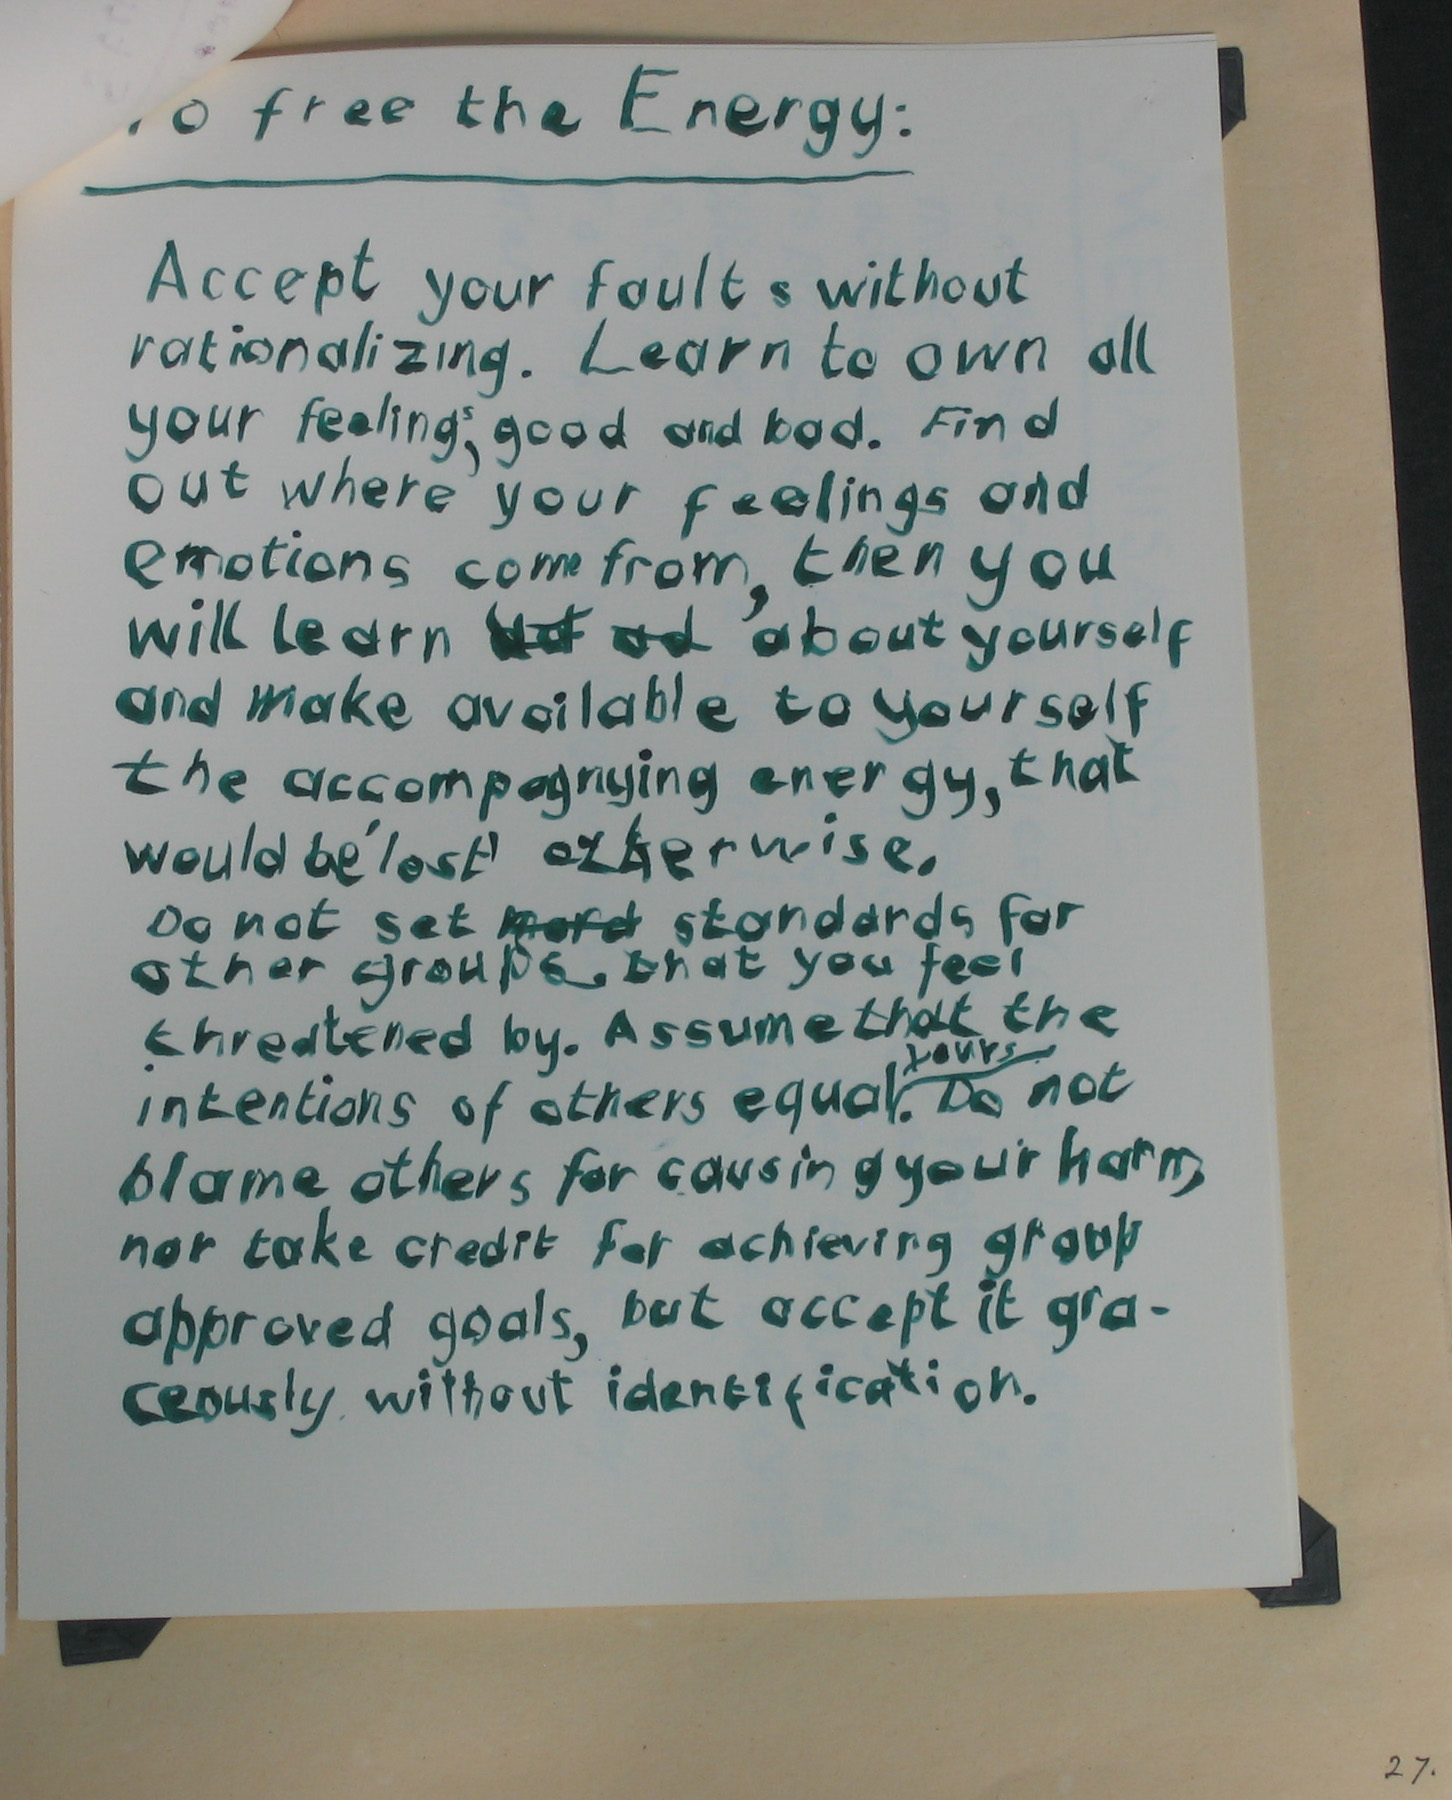 To free the Energy:
Accept your faults without
rationalizing. Learn to own all
your feelings, good and bad. Find
out where your feelings and
emotions come from, then you
will learn about yourself
and make available to yourself
the accompagnying energy, that
would be 'lost' otherwise.
Do not set standards for
other groups, that you feel
threatened by. Assume that the
yours
intentions of others equal. Do not
blame others for causing your harm,
nor take credit for achieving group
approved goals, but accept it gra-
ceously without identification.
27.